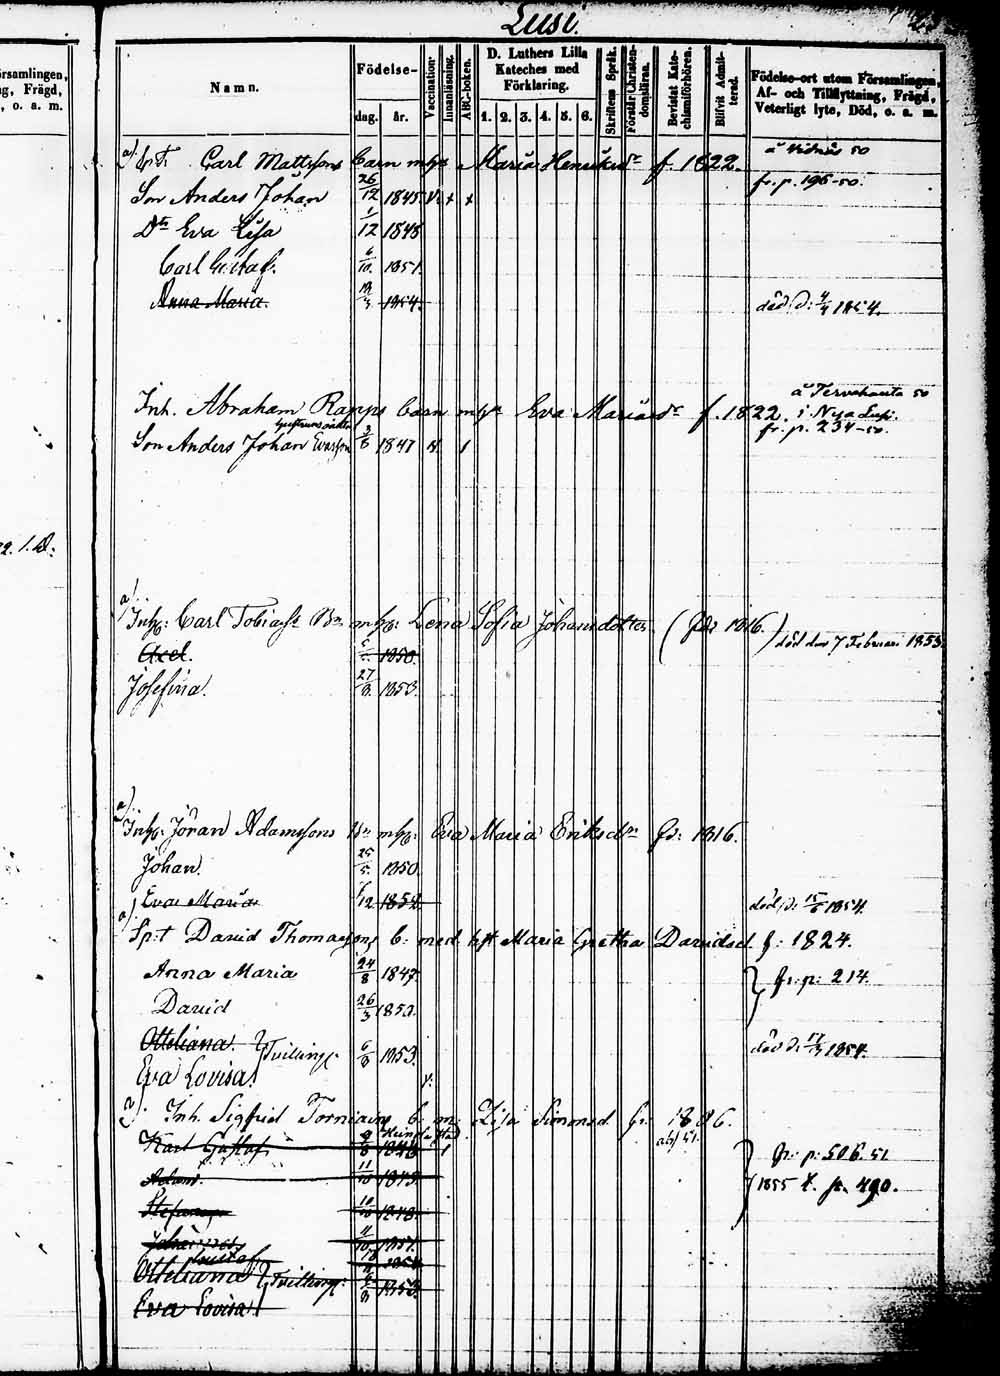 Lusi.
örsamlingen,
ng, Frägd,
, o. a. m.
Namn.
Födelse-
dag. år.
Vaccination
Innanläsning.
ABC-boken.
D. Luthers Lilla
Kateches med
Förklaring.
1. 2. 3. 4. 5. 6.
Skriftens Språk.
Förstår Christen-
domsläran.
Bevistat Kate-
chismiförhören.
Blifvit Admit-
terad.
Födelse-ort utom Församlingen,
Af- och Tillflyttning, Frägd,
Veterligt lyte, Död, o. a. m.
a) Carl Mattssons barn m/h Maria Henriksdr f. 1822.
fr. p. 196-50.
Son Anders Johan 26/12 1845
Dtr Eva Lisa 1/12 1848
Carl Gustaf. 6/10. 1851.
Anna Maria. 1854.
död d: 4/4 1854.
Inh. Abraham Rapps barn m/h Eva Mariasdr f. 1822.
å Tervahauta 50
i Nya Lusi.
fr. p. 234-50.
Son Anders Johan Evasson 1847
a)
Inh: Carl Tobiass Bn m/h: Lena Sofia Johansdotter (fdr 1816.) död den 7 Februari 1853
Axel. 1850.
Josefina. 27/8. 1853.
a)
Inh: Jöran Adamssons Bn m/h: Eva Maria Eriksdr fd: 1816.
Johan. 25/5. 1850.
Eva Maria 1/12 1852
död d: 15/6 1854.
a)
Sp:t David Thomassons b: med hst Maria Gretha Davidsd. f: 1824.
Anna Maria 24/8 1847.
fr: p: 214.
David 26/3 1850.
Otteliana. Tvillingr 6/8 1853.
död d: 17/3 1854.
Eva Lovisa.
a)
Inh. Sigfrid Torniains b. m. Lisa Simonsd. fr. 1806.
Karl Gustaf 1840
fr: p: 506. 51
Adam. 11/10 1843.
1855 t. p. 490.
Stefanus 10/10 1848.
Johannes 11/10 1851.
Gustaf 1854
Otteliana Tvillingr: 6/8 1853
Eva Lovisa.